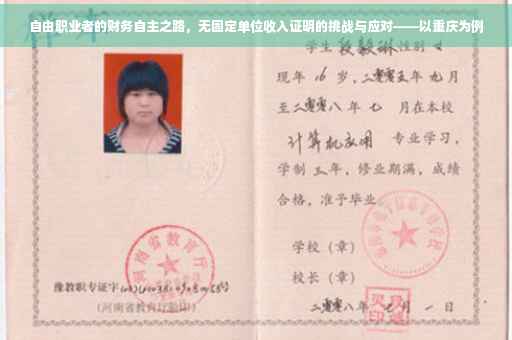 自由职业者的财务自主之路，无固定单位收入证明的挑战与应对——以重庆为例
学生 段毅琳 性别 女
现年 16 岁，二零零五年 九月
至二零零八年 七 月在本校
计算机应用 专业学习，
学制 三年，修业期满，成绩
合格，准予毕业。
河南省教育厅
学校（章）
校长（章）
豫教职专证字
（河南省教育厅验印）
二零零八年 七 月 一 日